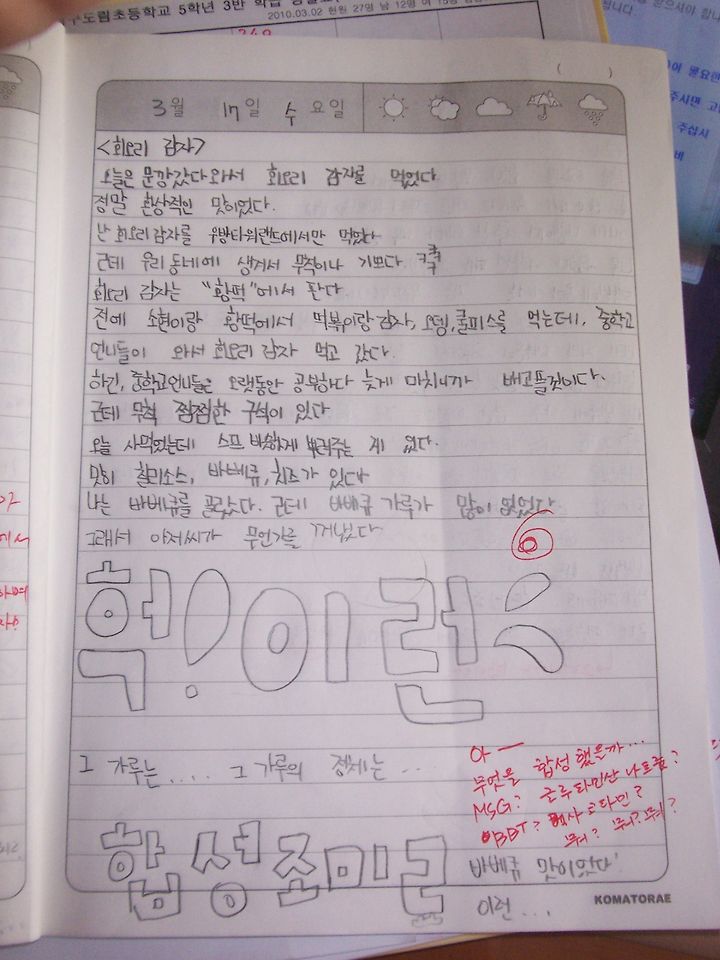 구도림초등학교 5학년 3반 학급
2010.03.02 현원 27명 남 12명 여 15명
( )
3월 17일 수요일
<회오리 감자>
오늘은 문깡갔다와서 회오리 감자를 먹었다
정말 환상적인 맛이었다.
난 회오리감자를 우방타워랜드에서만 먹었다
근데 우리동네에 생겨서 무척이나 기쁘다. 쿡쿡
회오리 감자는 "황떡"에서 판다
전에 소현이랑 황떡에서 떡볶이랑감자,오뎅,쿨피스를 먹는데, 중학교
언니들이 와서 회오리 감자 먹고 갔다.
하긴, 중학교언니들은 오랫동안 공부하다 늦게 마치니까 배고플것이다.
근데 무척 찜찜한 구석이 있다
오늘 사먹었는데 스프 비슷하게 뿌려주는 게 있다.
맛이 칠리소스, 바베큐,치즈가 있다
나는 바베큐를 골랐다. 근데 바베큐 가루가 많이 없었다
그래서 아저씨가 무언가를 꺼냈다
6
헉!이런;
그 가루는.... 그 가루의 정체는...
아ㅡ
무엇을 합성했을까...
MSG? 글루타민산 나트륨?
BDT? 코다민?
뭐? 뭐?뭐?
합성조미료
바베큐 맛이었다!
이런...
KOMATORAE